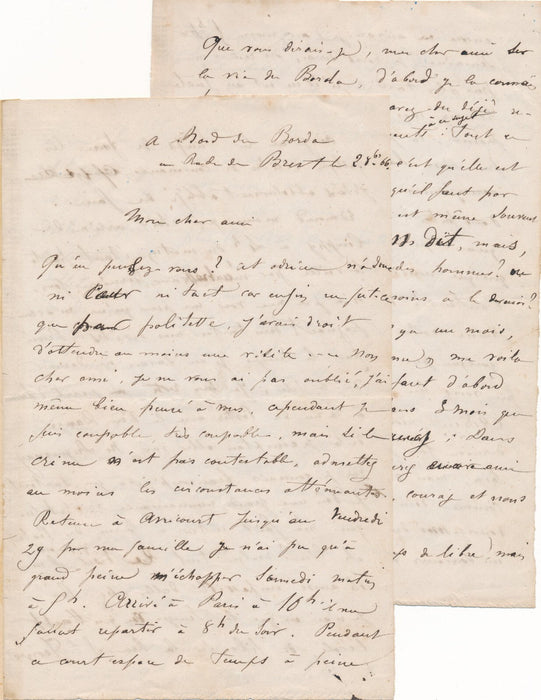 A Bord du Borda
en Rade de Brest le 2 8bre 66
Mon cher ami
Qu'en pensez-vous ? cet odieux
ni Cœur ni tact car enfin ne fut-ce
que par politesse, j'avais droit
d'attendre au moins une visite --- Non
cher ami, je ne vous ai pas oublié, j'ai
même bien pensé à vous, cependant je
suis coupable, très coupable, mais si le
crime n'est pas contestable, admettez
au moins les circonstances atténuantes.
Retenu à Arricourt jusqu'au Vendredi
29 par ma famille je n'ai pu qu'à
grand peine m'échapper Samedi matin
à 5h. Arrivé à Paris à 10h il me
fallait repartir à 8h du Soir. Pendant
ce court espace de temps à peine
Que vous dirais-je, mon cher ami sur
la vie du Borda, d'abord je la connais
avez du déjà
à ce sujet
Tout ce
c'est qu'elle est
qu'il faut par
est même souvent
dit, mais,
des hommes ?
soins à le
un mois,
me voila
faut d'abord
3 mois que
Dans
ami
courage et nous
de libre) mais